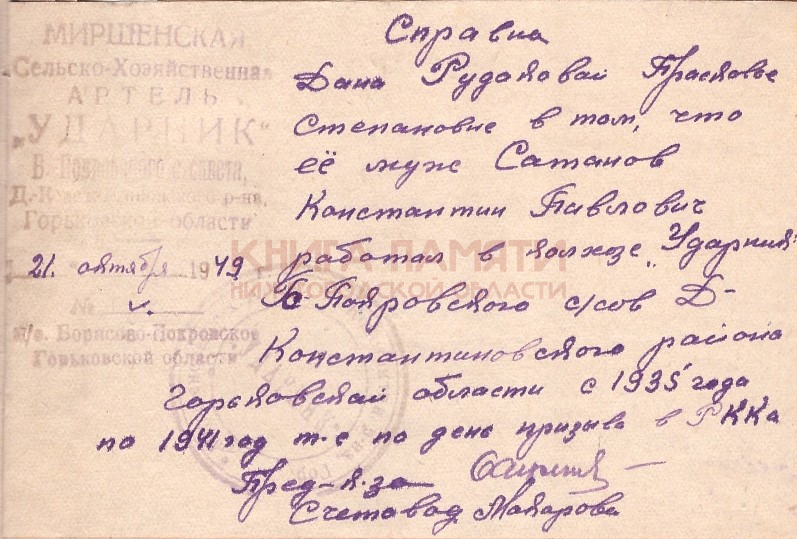 МИРШЕНСКАЯ
Сельско-Хозяйственная
АРТЕЛЬ
„УДАРНИК“
Б. Покровского с/совета,
Д.-Константиновского р-на,
Горьковской области
21. октября 1949 г.
№
п/о. Борисово-Покровское
Горьковской области
Справка
Дана Рудаковай Прасковье
Степановне в том, что
её муж Сатанов
Константин Павлович
работал в колхозе „Ударник“
Б-Покровского с/сов Д-
Константиновского района
Горьковскай области с 1935 года
по 1941 год т-е по день призыва в РККа
Пред-к-за
Счетовод Макарова
КНИГА ПАМЯТИ
НИЖЕГОРОДСКОЙ ОБЛАСТИ